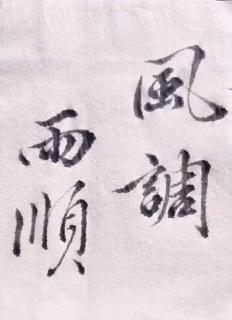 風調
雨順